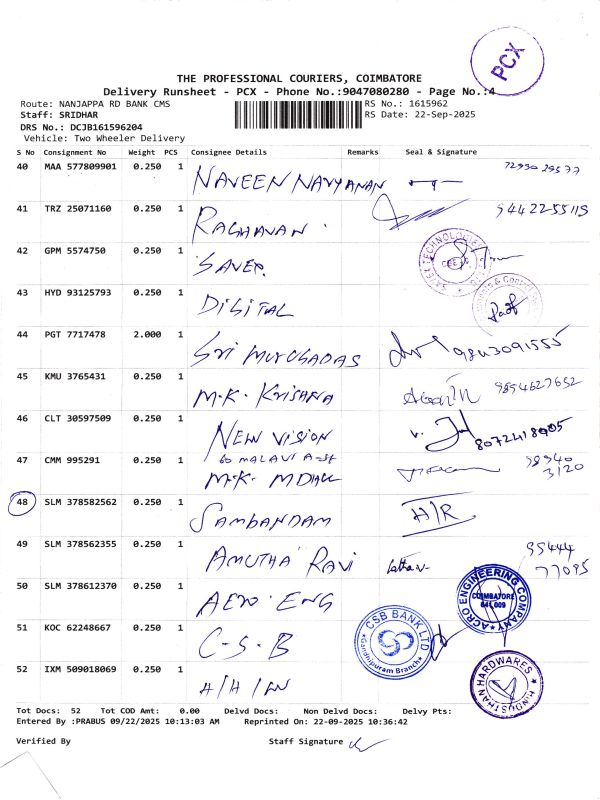 PCX
THE PROFESSIONAL COURIERS, COIMBATORE
Delivery Runsheet - PCX - Phone No.:9047080280 - Page No.:4
Route: NANJAPPA RD BANK CMS RS No.: 1615962
Staff: SRIDHAR RS Date: 22-Sep-2025
DRS No.: DCJB161596204
Vehicle: Two Wheeler Delivery
S No Consignment No Weight PCS Consignee Details Remarks Seal & Signature
40 MAA 577809901 0.250 1 NAVEEN NARYANAN
41 TRZ 25071160 0.250 1 RAGHAVAN 9442255119
42 GPM 5574750 0.250 1 SAVER
43 HYD 93125793 0.250 1 DIGITAL
44 PGT 7717478 2.000 1 SRI MURUGADAS 9843091555
45 KMU 3765431 0.250 1 M.K. KRISHNA 9894627652
46 CLT 30597509 0.250 1 NEW VISION 8072418905
47 CMM 995291 0.250 1 M.K.
48 SLM 378582562 0.250 1 SAMBANDAM H/R
49 SLM 378562355 0.250 1 AMUTHA RAVI 95444 77095
50 SLM 378612370 0.250 1 AERO ENG
ACRO ENGINEERING COMPANY COIMBATORE 641 009
51 KOC 62248667 0.250 1 C-S-B
CSB BANK LTD Gandhipuram Branch
52 IXM 509018069 0.250 1 H/H/W
HINDUSTHAN HARDWARES
Tot Docs: 52 Tot COD Amt: 0.00 Delvd Docs: Non Delvd Docs: Delvy Pts:
Entered By :PRABUS 09/22/2025 10:13:03 AM Reprinted On: 22-09-2025 10:36:42
Verified By Staff Signature